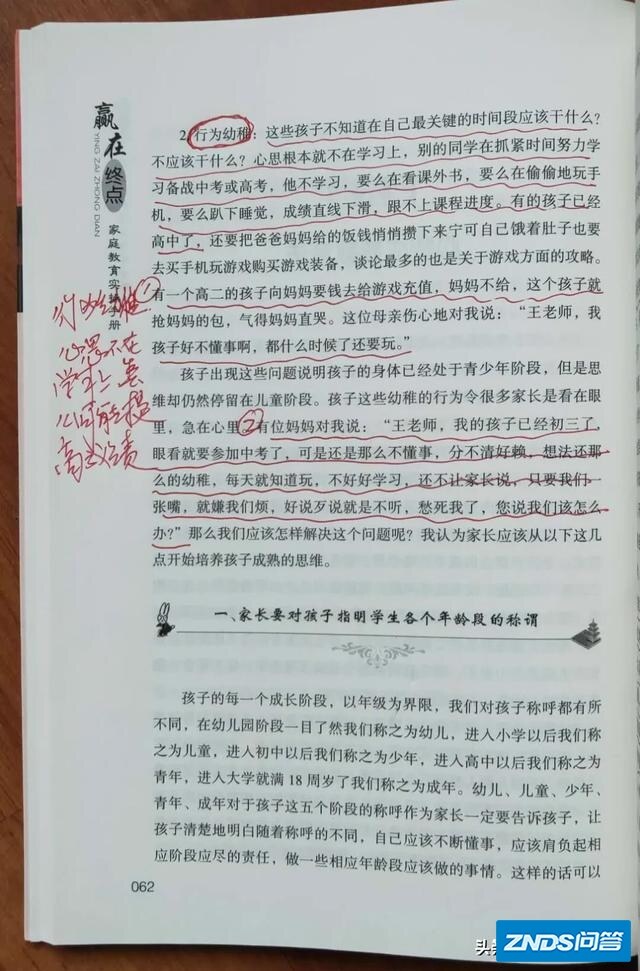 赢在终点
YING ZAI ZHONG DIAN
家庭教育实操手册
2. 行为幼稚：这些孩子不知道在自己最关键的时间段应该干什么？
不应该干什么？心思根本就不在学习上，别的同学在抓紧时间努力学
习备战中考或高考，他不学习，要么在看课外书，要么在偷偷地玩手
机，要么趴下睡觉，成绩直线下滑，跟不上课程进度。有的孩子已经
高中了，还要把爸爸妈妈给的饭钱悄悄攒下来宁可自己饿着肚子也要
去买手机玩游戏购买游戏装备，谈论最多的也是关于游戏方面的攻略。
有一个高二的孩子向妈妈要钱去给游戏充值，妈妈不给，这个孩子就
抢妈妈的包，气得妈妈直哭。这位母亲伤心地对我说：“王老师，我
孩子好不懂事啊，都什么时候了还要玩。”
孩子出现这些问题说明孩子的身体已经处于青少年阶段，但是思
维却仍然停留在儿童阶段。孩子这些幼稚的行为令很多家长是看在眼
里，急在心里。②有位妈妈对我说：“王老师，我的孩子已经初三了，
眼看就要参加中考了，可是还是那么不懂事，分不清好赖，想法还那
么的幼稚，每天就知道玩，不好好学习，还不让家长说，只要我们一
张嘴，就嫌我们烦，好说歹说就是不听，愁死我了，您说我们该怎么
办？”那么我们应该怎样解决这个问题呢？我认为家长应该从以下这几
点开始培养孩子成熟的思维。
①
行为幼稚
心思不在
学习上
高
责
一、家长要对孩子指明学生各个年龄段的称谓
孩子的每一个成长阶段，以年级为界限，我们对孩子称呼都有所
不同，在幼儿园阶段一目了然我们称之为幼儿，进入小学以后我们称
之为儿童，进入初中以后我们称之为少年，进入高中以后我们称之为
青年，进入大学就满 18 周岁了我们称之为成年。幼儿、儿童、少年、
青年、成年对于孩子这五个阶段的称呼作为家长一定要告诉孩子，让
孩子清楚地明白随着称呼的不同，自己应该不断懂事，应该肩负起相
应阶段应尽的责任，做一些相应年龄段应该做的事情。这样的话可以
062
头
ZNDS问答